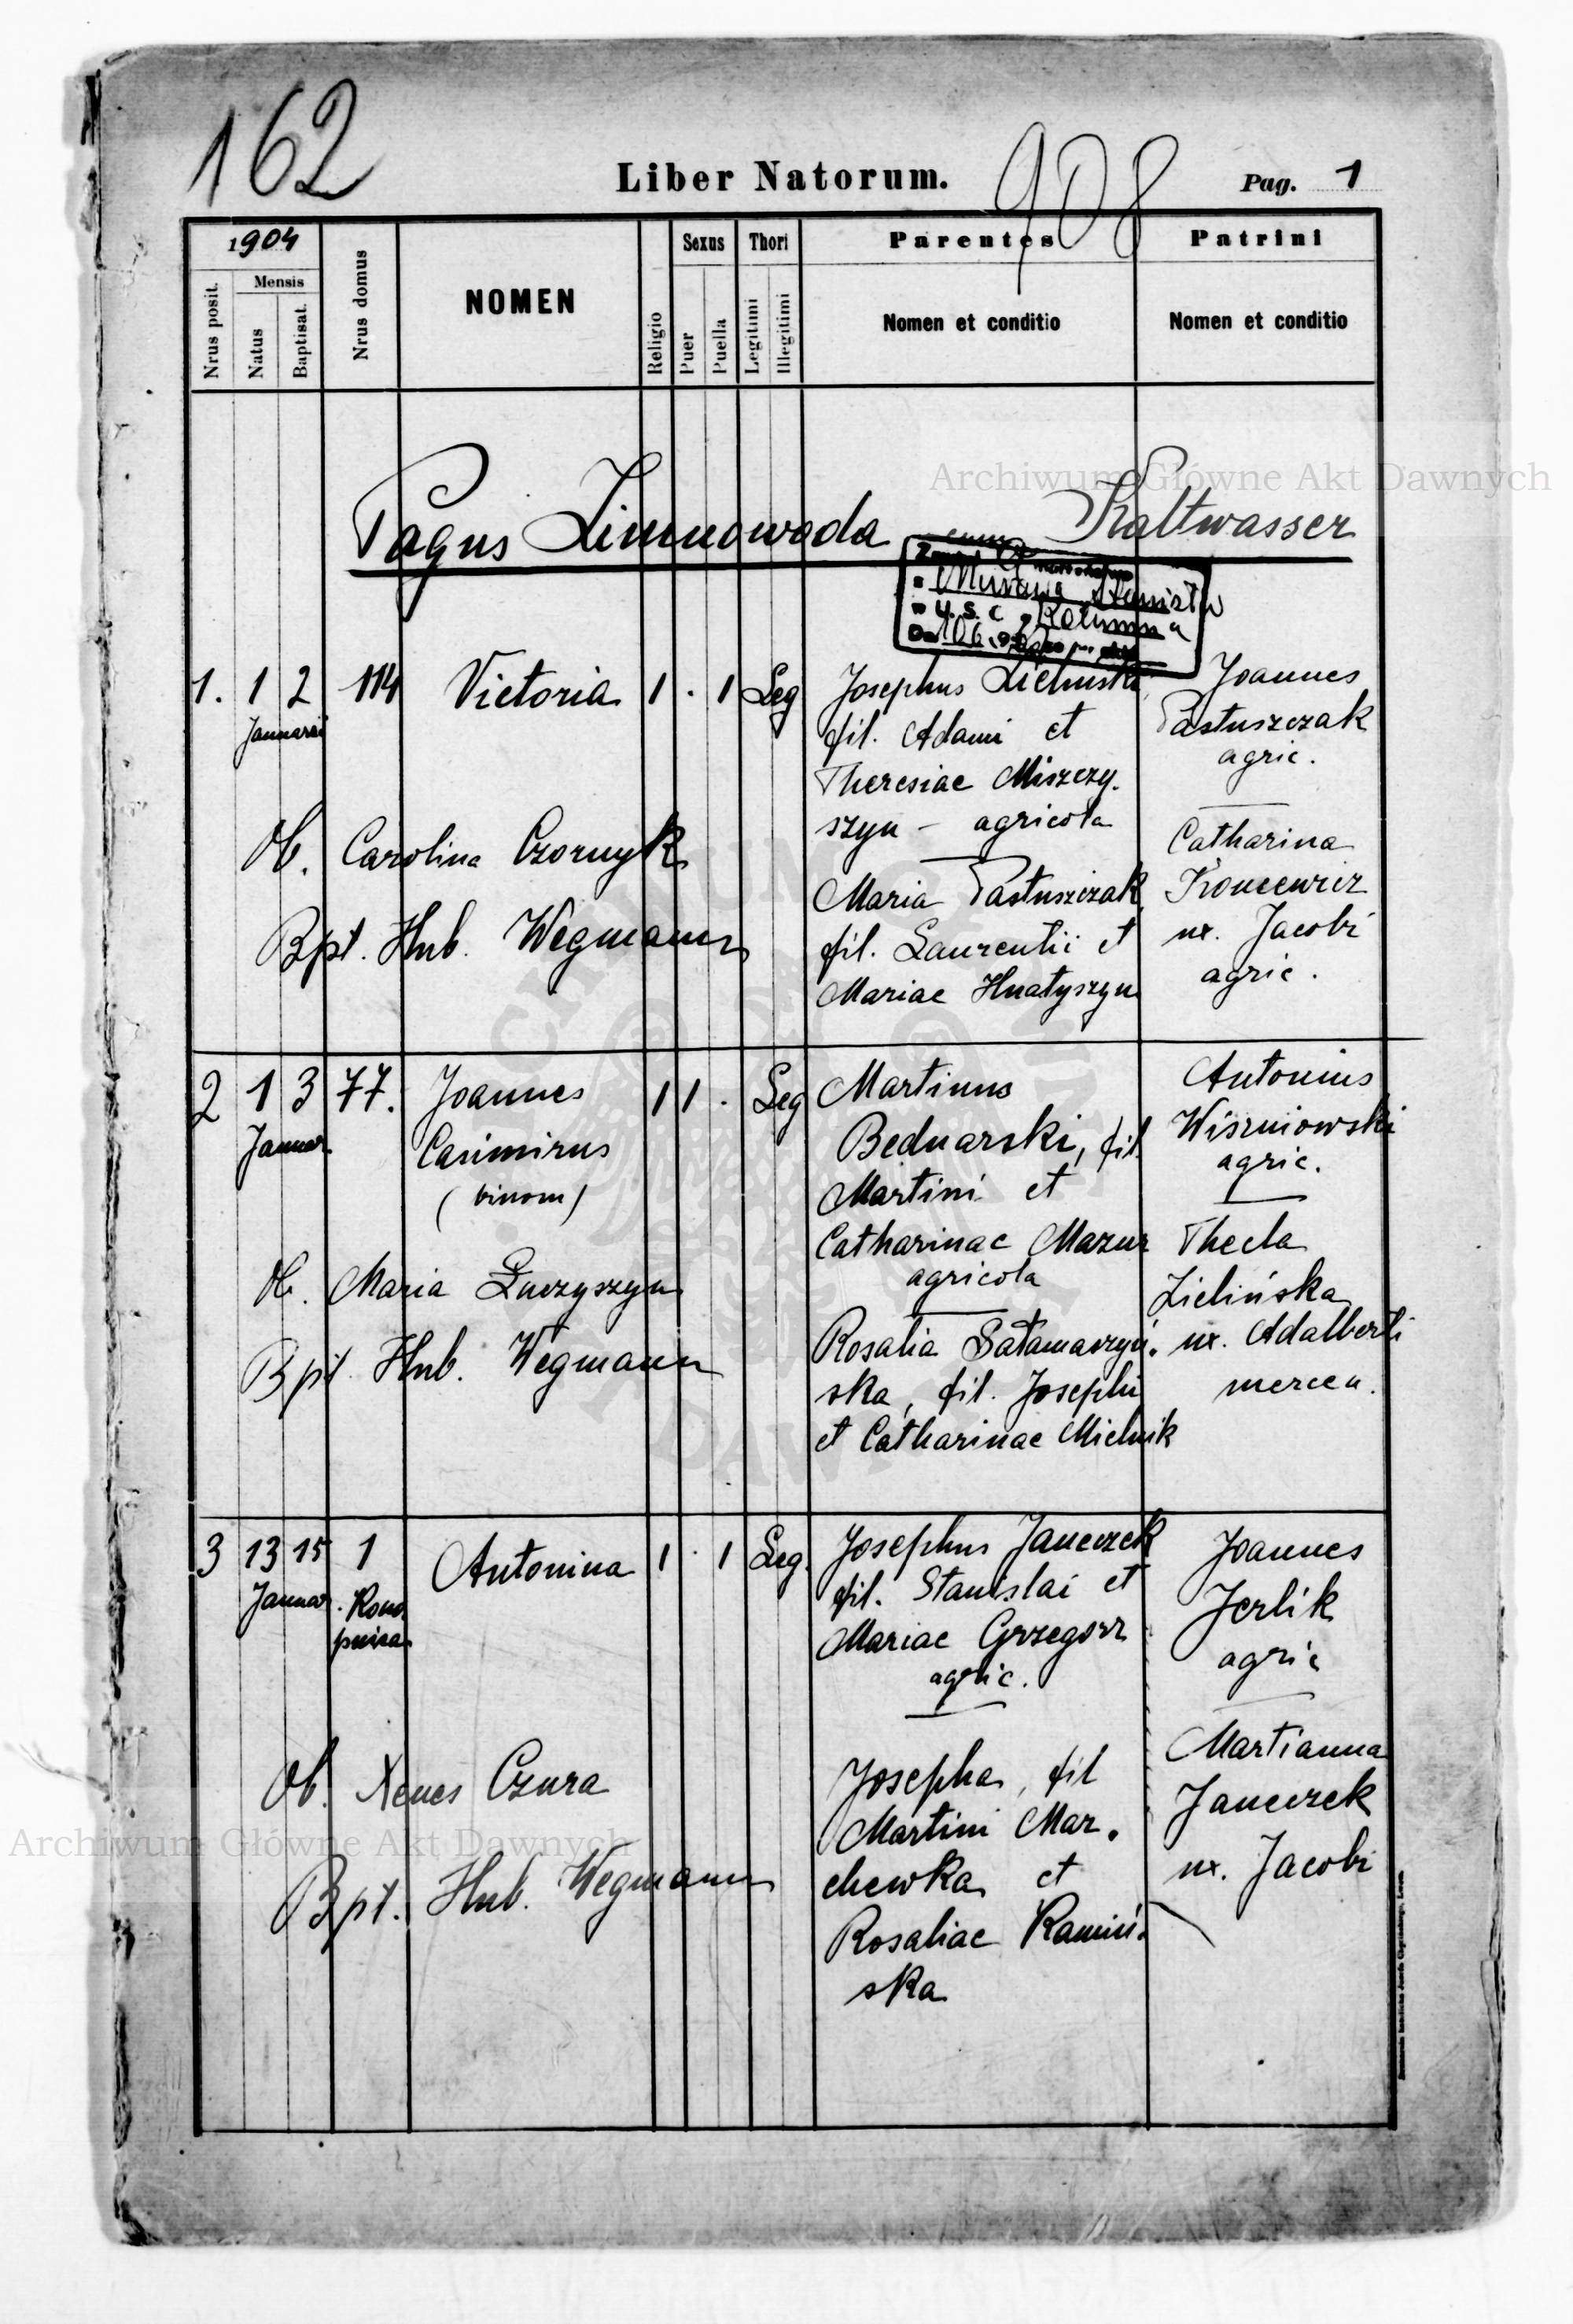 162
Liber Natorum.
908
Pag. 1
1904
Nrus posit.
Mensis
Natus
Baptisat.
Nrus domus
NOMEN
Religio
Sexus
Puer
Puella
Thori
Legitimi
Illegitimi
Parentes
Nomen et conditio
Patrini
Nomen et conditio
Archiwum Główne Akt Dawnych
Pagus Zimnowoda cum Kaltwasser
U.S.C.
1. 1 2 114 Victoria 1 . 1 Leg
Januarii
Josephus Zieliński
fil. Adami et
Theresiae Miszczy.
szyn – agricola
Maria Pastuszczak
fil. Laurentii et
Mariae Hnatyszyn
Joannes
Pastuszczak
agric.
Catharina
Koncewicz
ux. Jacobi
agric.
Ob. Carolina Czornyk
Bpt. Hub. Wegmann
2 1 3 77. Joannes 1 1 . Leg
Januar.
Casimirus
(binom)
Martinus
Bednarski, fil.
Martini et
Catharinae Mazur
agricola
Rosalia Sałamaczyń.
ska, fil. Josephi
et Catharinae Mielnik
Antonius
Wiszniowski
agric.
Thecla
Zielińska
ux. Adalberti
mercen.
Ob. Maria Łuczyszyn
Bpt. Hub. Wegmann
3 13 15 1 Antonina 1 . 1 Leg.
Januar.
Kono
pnica
Josephus Janeczek
fil. Stanislai et
Mariae Grzegorz
agric.
Josepha, fil
Martini Mar.
chewka et
Rosaliae Kamiń.
ska
Joannes
Jerlik
agric
Martianna
Janeczek
ux. Jacobi
Ob. Xenes Czura
Bpt. Hub. Wegmann
Archiwum Główne Akt Dawnych